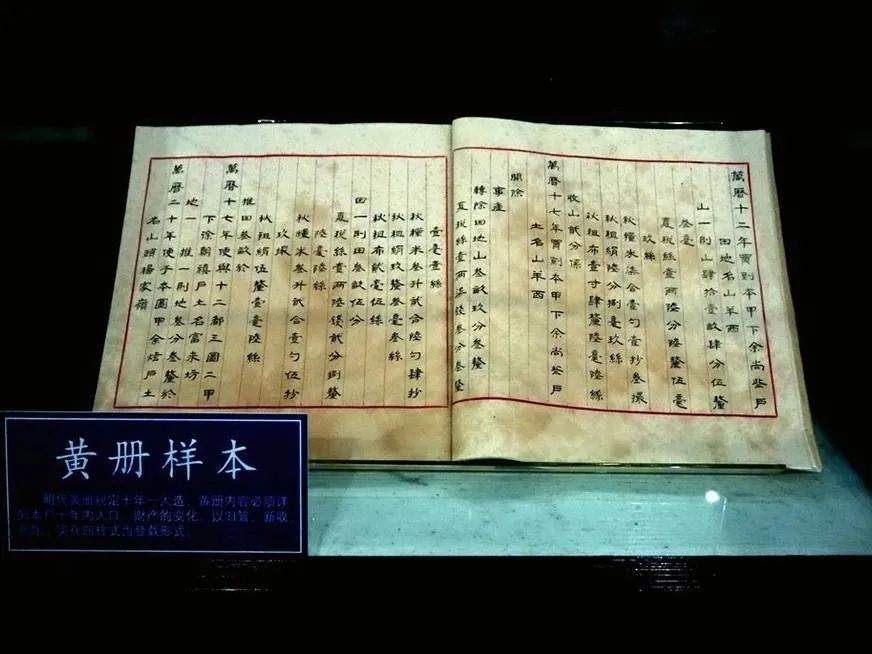 萬曆十二年買到本甲下余尚戶
田地名山羊西
山一則山肆拾壹畝肆分伍釐
叁毫
夏税絲壹兩陸分陸釐伍毫
玖絲
秋糧米柒合壹勺壹抄叁撮
秋租絹陸分捌毫玖絲
秋租布壹寸肆釐陸毫陸絲
收山貳分係
萬曆十七年買到本甲下余尚戶
土名山羊西
開除
事產
轉除田地山叁畝玖分叁釐
夏税絲壹兩柒錢叁分叁釐
壹毫壹絲
秋糧米叁升貳合陸勺肆抄
秋租絹玖釐叁毫叁絲
秋租布貳毫伍絲
田一則田叁畝伍分
夏税絲壹兩陸錢貳分捌釐
陸毫陸絲
秋糧米叁升貳合壹勺伍抄
玖撮
秋租絹伍釐壹毫陸絲
推田叁畝於
萬曆十七年使與十二都三圖二甲
下徐朝禧戶土名富來坊
地一 推一則地叁分叁釐於
萬曆二十年使于本圖甲余戶土
名山頭楊家嶺
黄册样本
明代黄册规定十年一大造,黄册内容必须详
列本户十年内人口、财产的变化。以旧管、新收、
开除、实在四柱式为登载形式。